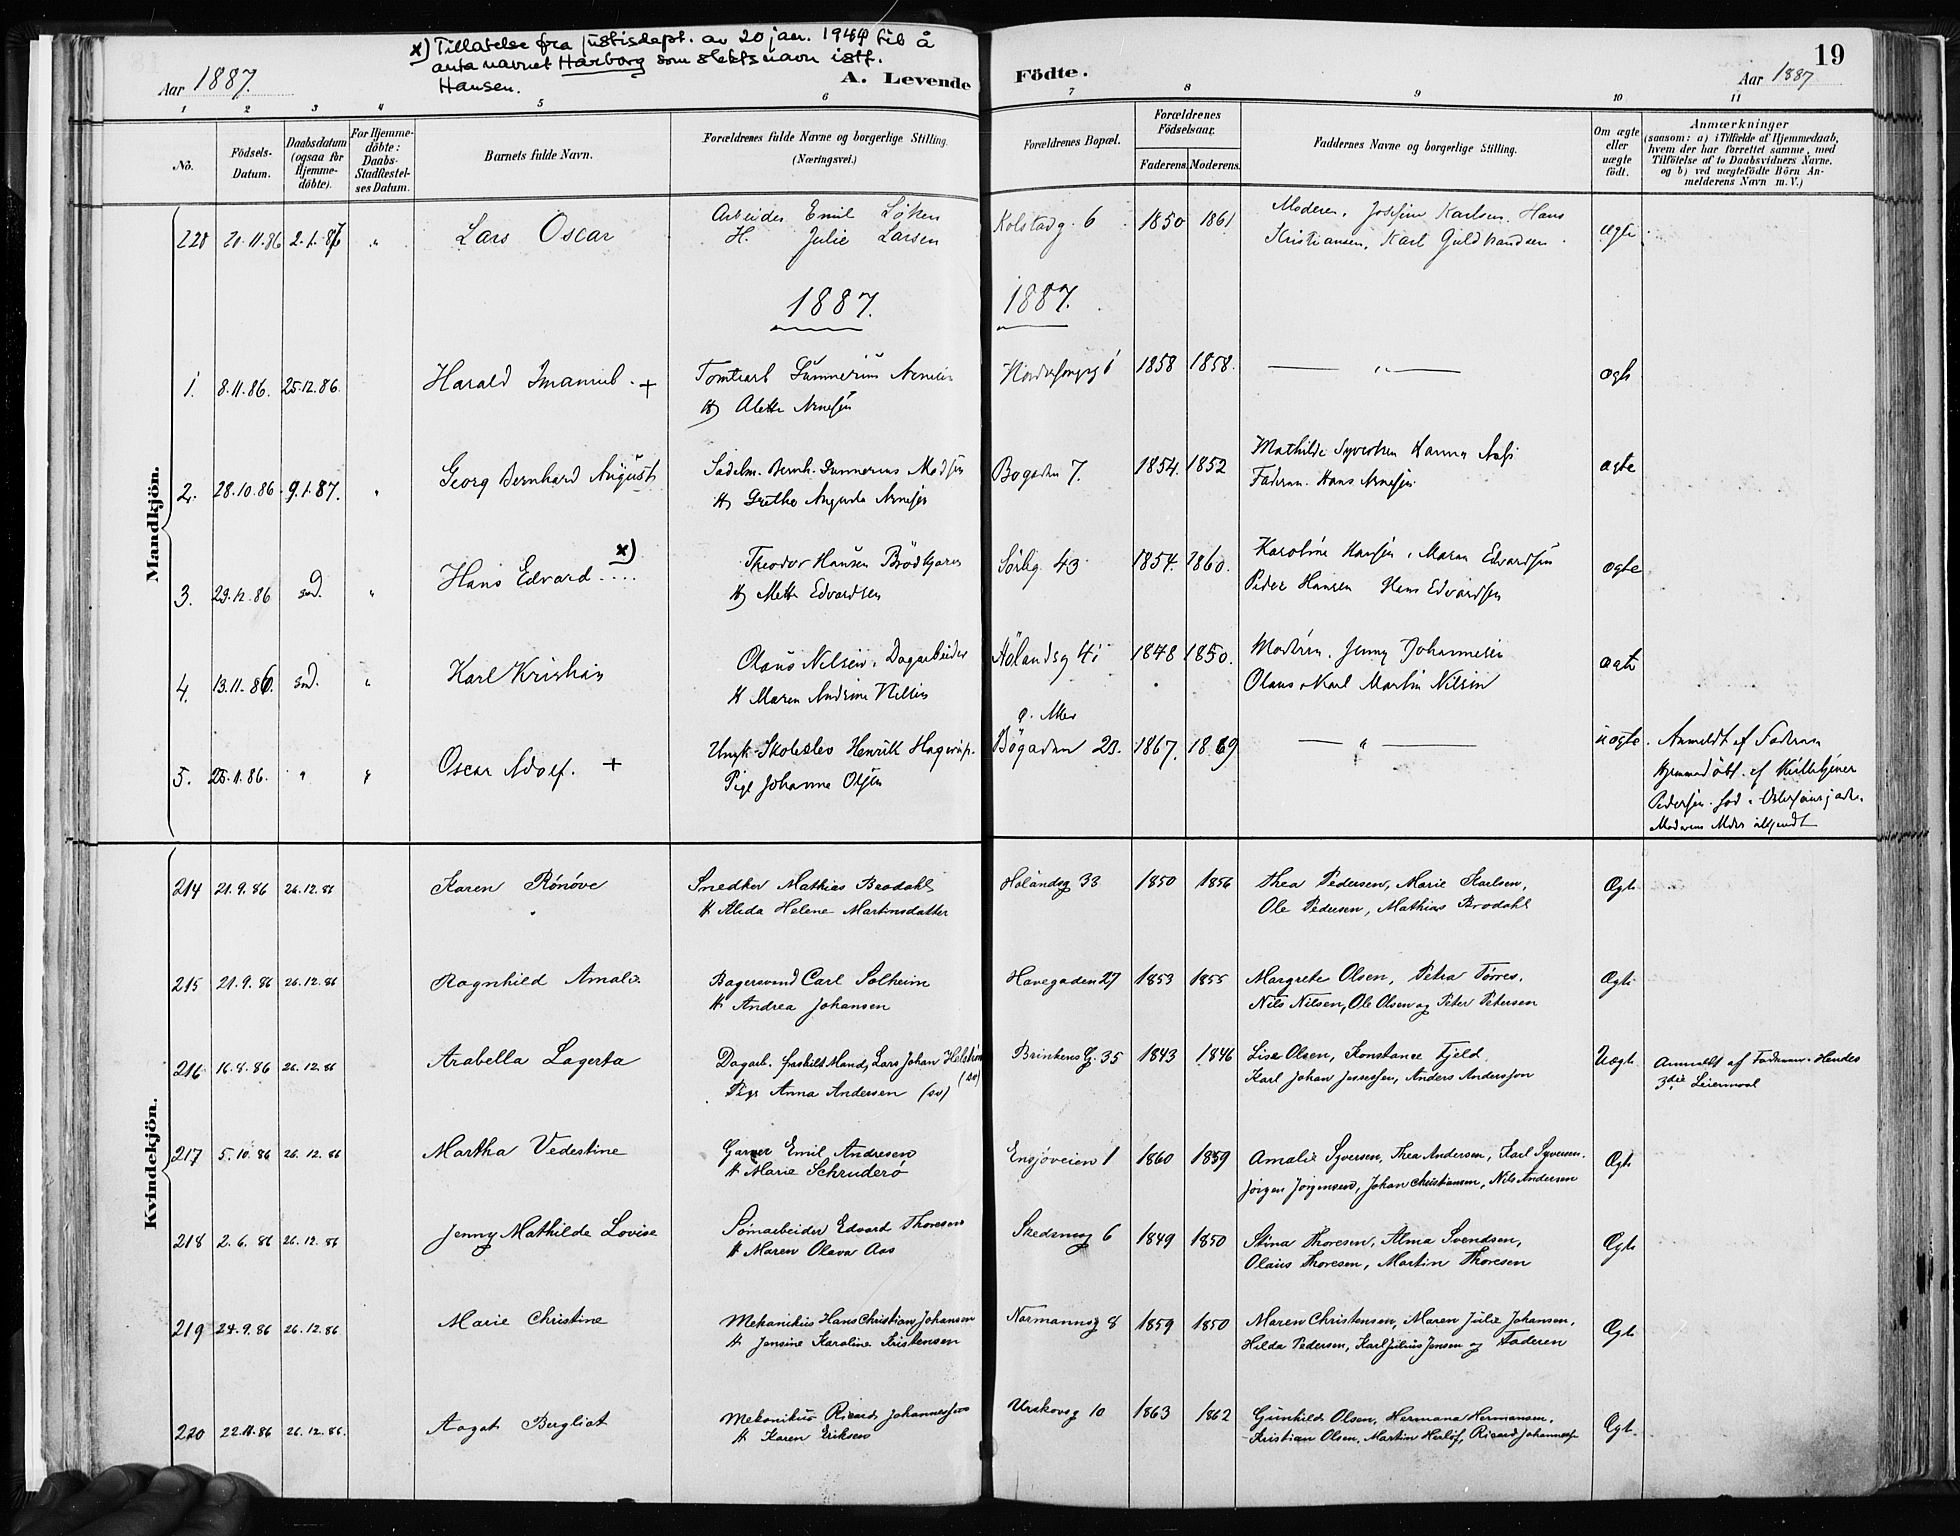 x) Tillatelse fra justisdept. av 20 jan. 1944 til å
anta navnet Harborg som slektsnavn istf.
Hansen.
Aar 1887.
A. Levende Födte.
Aar 1887
19
1 2 3 4 5 6 7 8 9 10 11
No.
Födsels-
Datum.
Daabsdatum
(ogsaa for
Hjemme-
döbte).
For Hjemme-
döbte:
Daabs-
Stadfæstel-
ses Datum.
Barnets fulde Navn.
Forældrenes fulde Navne og borgerlige Stilling.
(Næringsvei.)
Forældrenes Bopæl.
Forældrenes
Födselsaar.
Faderens. Moderens.
Faddernes Navne og borgerlige Stilling.
Om ægte
eller
uægte
født.
Anmærkninger
(saasom: a) i Tilfælde af Hjemmedaab,
hvem der har forrettet samme, med
Tilföielse af to Daabsvidners Navne.
og b) ved uægtefödte Börn An-
melderens Navn m. V.)
Mandkjön.
228 21.11.86 2.1.87 " Lars Oscar Arbeider Emil Løken Kolstadg. 6 1850 1861 Moderen, Josefine Karlsen, Hans ægte
H. Julie Larsen Kristiansen, Karl Guldbrandsen.
1887. 1887.
1. 8.11.86. 25.12.86. Harald Imanuel. + Tomtearb Gunnerius Arnesen 1858 1858. — " — ægte
H Alette Arnesen
2. 28.10.86 9.1.87. " Georg Bernhard August Sadelm. Bernh. Gunnerius Madsen Bogaden 7. 1854. 1852 Mathilde Syversen Hanna ægte
H Grethe Augusta Arnesen Faderen. Hans Arnesen
3. 29.12.86 sd. " Hans Edvard x) .... Theodor Hansen Brödkjører Sörlig 43 1854. 1860. Karoline Hansen, Maren Edvardsen ægte
H Mette Edvardsen Peder Hansen Hans Edvardsen
4. 13.11.86. sd. " Karl Kristian Olaus Nilsen, Dagarbeider Hölandsg 41 1848 1850. Moderen. Jenny Johannesen ægte
H Maren Andrine Nilsen Olaus & Karl Martin Nilsen
5. 25.11.86. " " Oscar Adolf. + Skoleelev Henrik Hagerup. Bögaden 23. 1867. 1869 — " — uægte. Anmeldt af Faderen
Pige Johanne Olsen Hjemmedöbt. af
Pedersen.
Moderens Alder
Kvindekjön.
214 21.9.86 26.12.86 Karen Rönöve Snedker Mathias Brodahl Hölandsg 33 1850 1856 Thea Pedersen, Marie Karlsen, Ægte
H Alida Helene Martinsdatter Ole Pedersen, Mathias Brodahl
215 21.9.86 26.12.86 Ragnhild Amalie Bagersvend Carl Solheim Havegaden 27 1853 1855 Margrete Olsen, Petra Törres, Ægte
H Andrea Johansen Nils Nilsen, Ole Olsen og Peter Petersen
216 16.8.86 26.12.86 Arabella Lagerta Dagarb. fraskilt Mand, Lars Johan Helström (sv) Brinkens G. 35 1843 1846 Lise Olsen, Konstance Fjeld, Uægte Anmeldt af Faderen. Hendes
Pige Anna Andersen (sv) Karl Johan Jossesen, Anders Anderson 3die Leiermaal
217 5.10.86 26.12.86 Martha Vedestine Garver Emil Andresen Ensjöveien 1 1860 1859 Amalie Syversen, Thea Andersen, Karl Syversen. Ægte
H Marie Schruderö Jörgen Jörgensen, Johan Christiansen, Nils Andersen
218 2.6.86 26.12.86 Jenny Mathilde Lovise Sömarbeider Edvard Thoresen Skedsmog 6 1849 1850 Stina Thoresen, Alma Svendsen, Ægte
H Maren Olava Aas Olaus Thoresen, Martin Thoresen
219 24.9.86 26.12.86 Marie Christine Mekanikus Hans Christian Johansen Normannsg 8 1859 1850 Maren Christensen, Maren Julie Johansen, Ægte
H Jensine Karoline Kristensen Hilda Pedersen, Karl Julius Jensen og Faderen
220 22.11.86 26.12.86. Aagot Bergliot Mekanikus Ricard Johannessen Urskovsg 10 1863 1862 Gunhild Olsen, Hermana Hermansen, Ægte
H Karen Eriksen Kristian Olsen, Martin Herlof, Ricard Johannessen